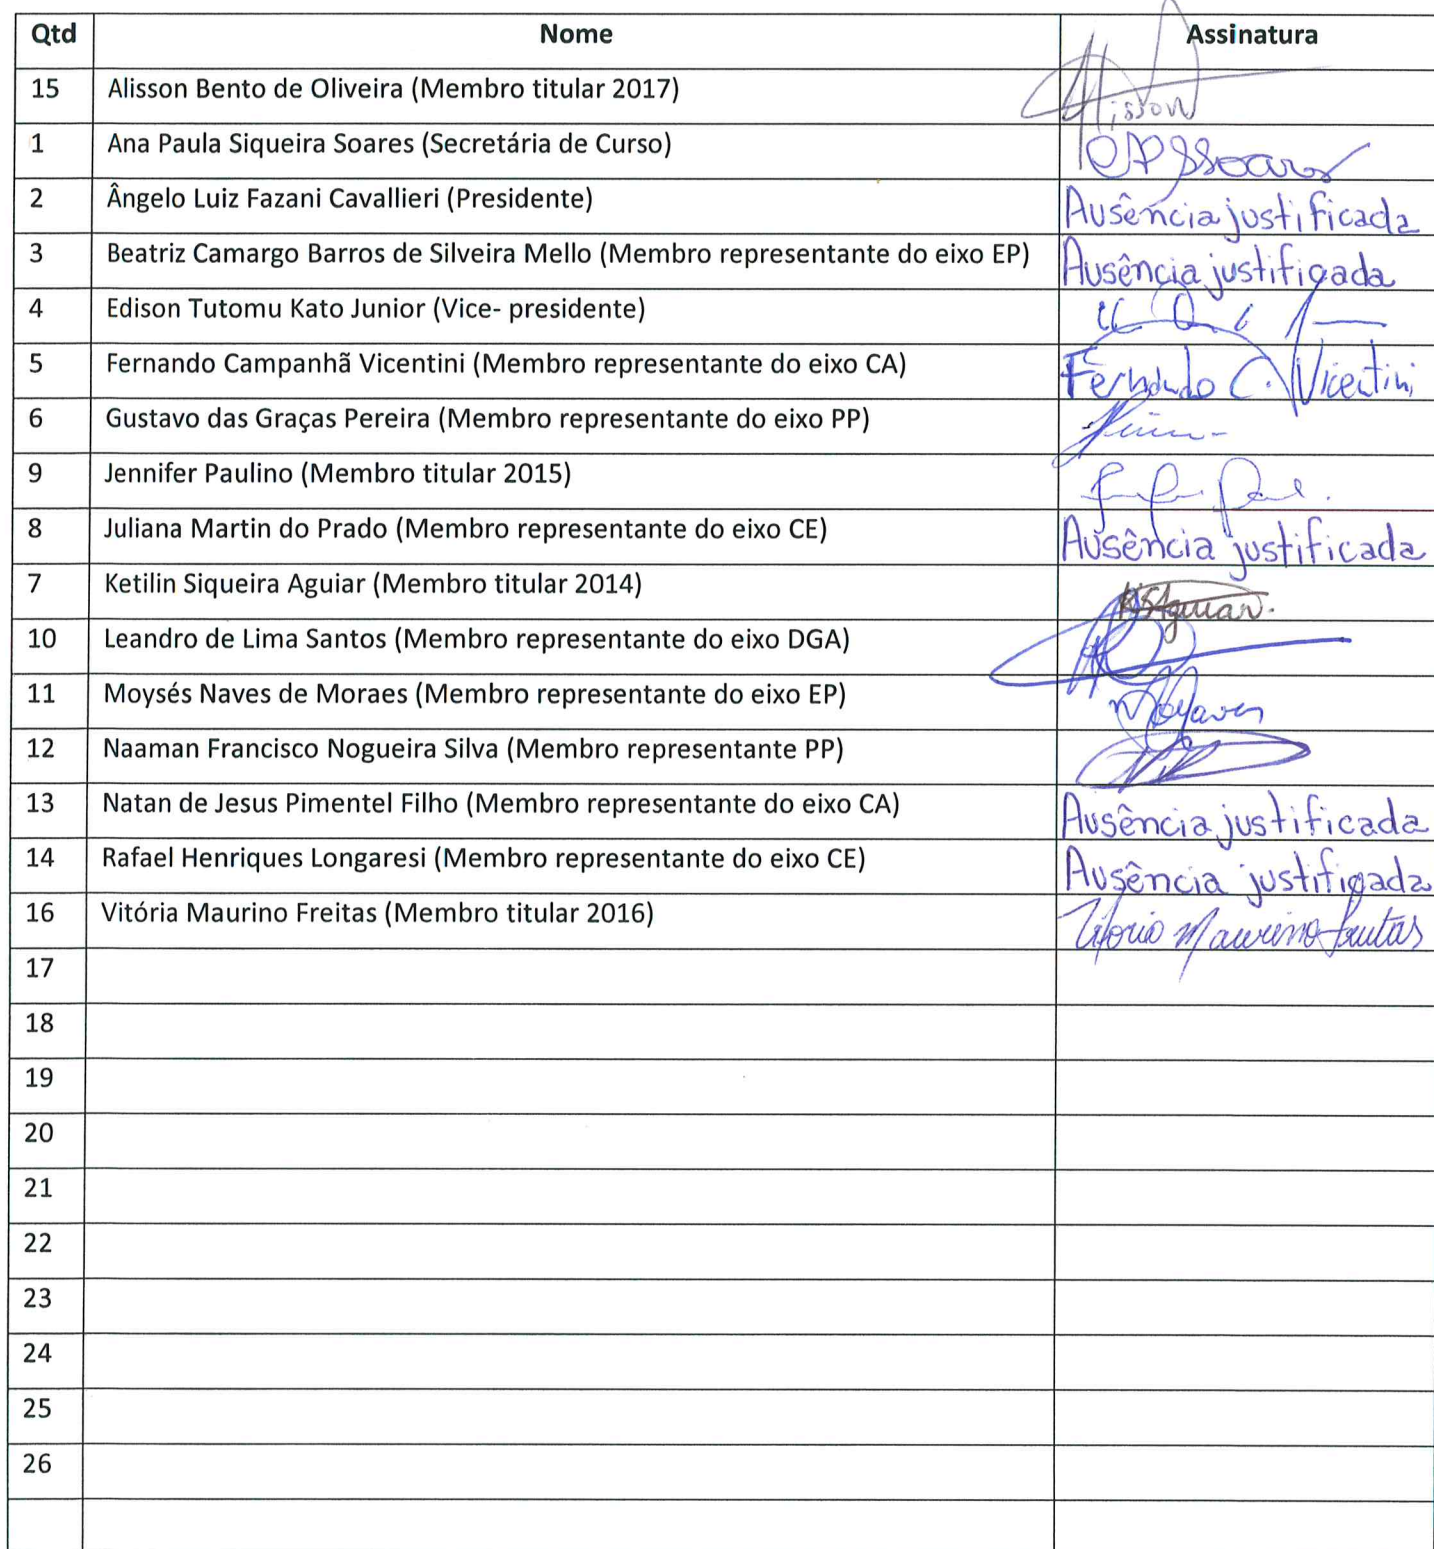 Qtd Nome Assinatura
15 Alisson Bento de Oliveira (Membro titular 2017) Alisson
1 Ana Paula Siqueira Soares (Secretária de Curso) APSSoares
2 Ângelo Luiz Fazani Cavallieri (Presidente) Ausência justificada
3 Beatriz Camargo Barros de Silveira Mello (Membro representante do eixo EP) Ausência justificada
4 Edison Tutomu Kato Junior (Vice- presidente)
5 Fernando Campanhã Vicentini (Membro representante do eixo CA) Fernando C. Vicentini
6 Gustavo das Graças Pereira (Membro representante do eixo PP)
9 Jennifer Paulino (Membro titular 2015)
8 Juliana Martin do Prado (Membro representante do eixo CE) Ausência justificada
7 Ketilin Siqueira Aguiar (Membro titular 2014) KSAguiar.
10 Leandro de Lima Santos (Membro representante do eixo DGA)
11 Moysés Naves de Moraes (Membro representante do eixo EP)
12 Naaman Francisco Nogueira Silva (Membro representante PP)
13 Natan de Jesus Pimentel Filho (Membro representante do eixo CA) Ausência justificada
14 Rafael Henriques Longaresi (Membro representante do eixo CE) Ausência justificada
16 Vitória Maurino Freitas (Membro titular 2016) Vitória Maurino Freitas
17
18
19
20
21
22
23
24
25
26